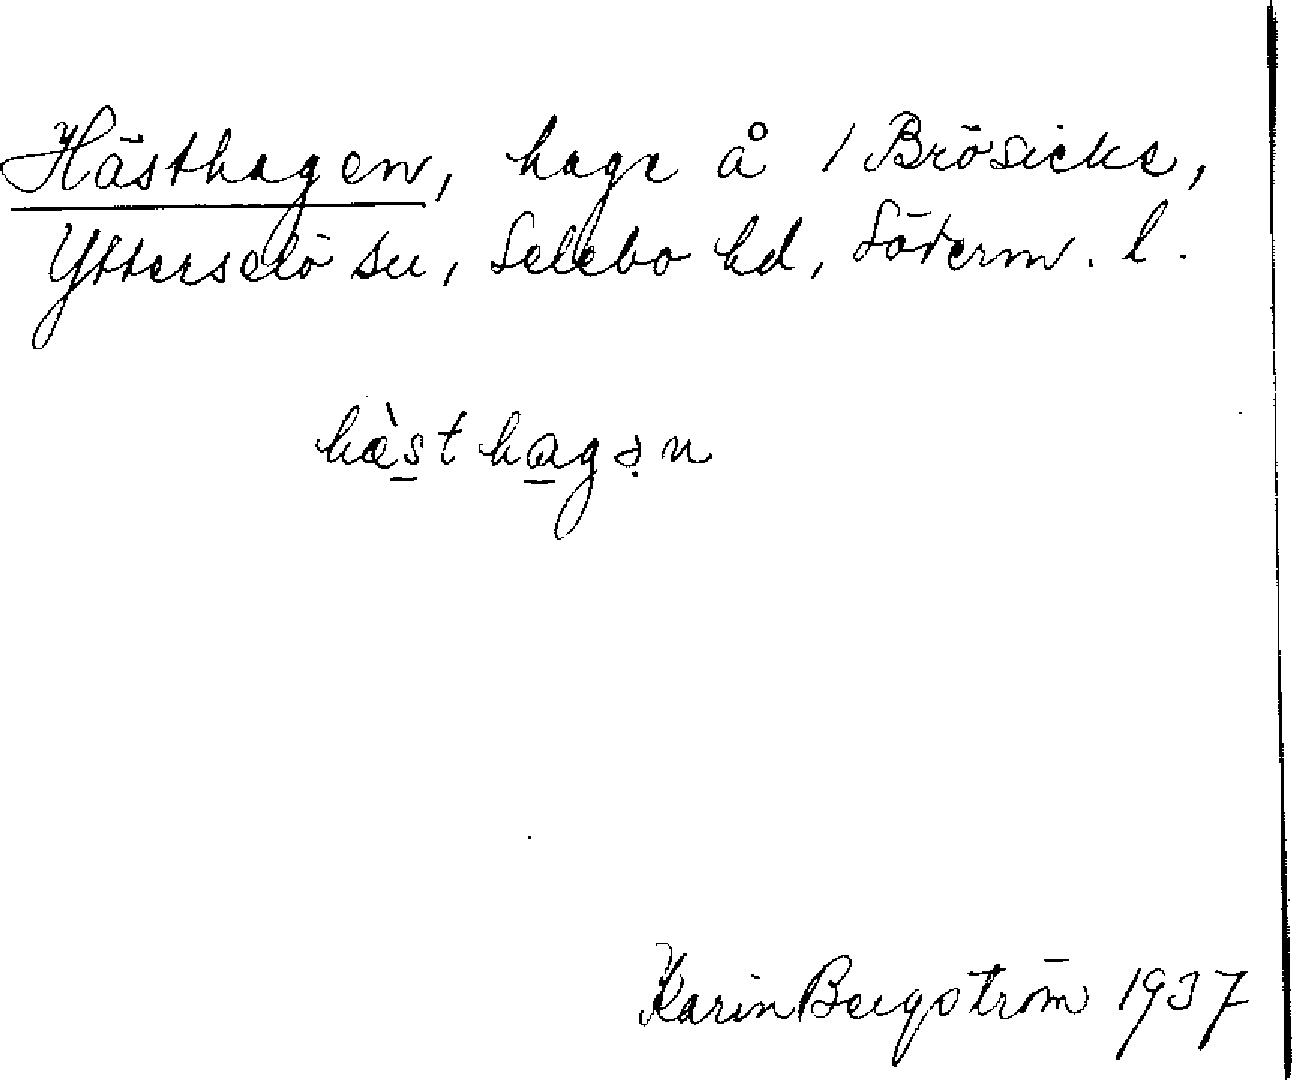 Hästhagen, hage å 1 Brösicke,
Ytterselö sn, Selebo hd, Söderm. l.
hæ̀st hagən
Karin Bergström 1937